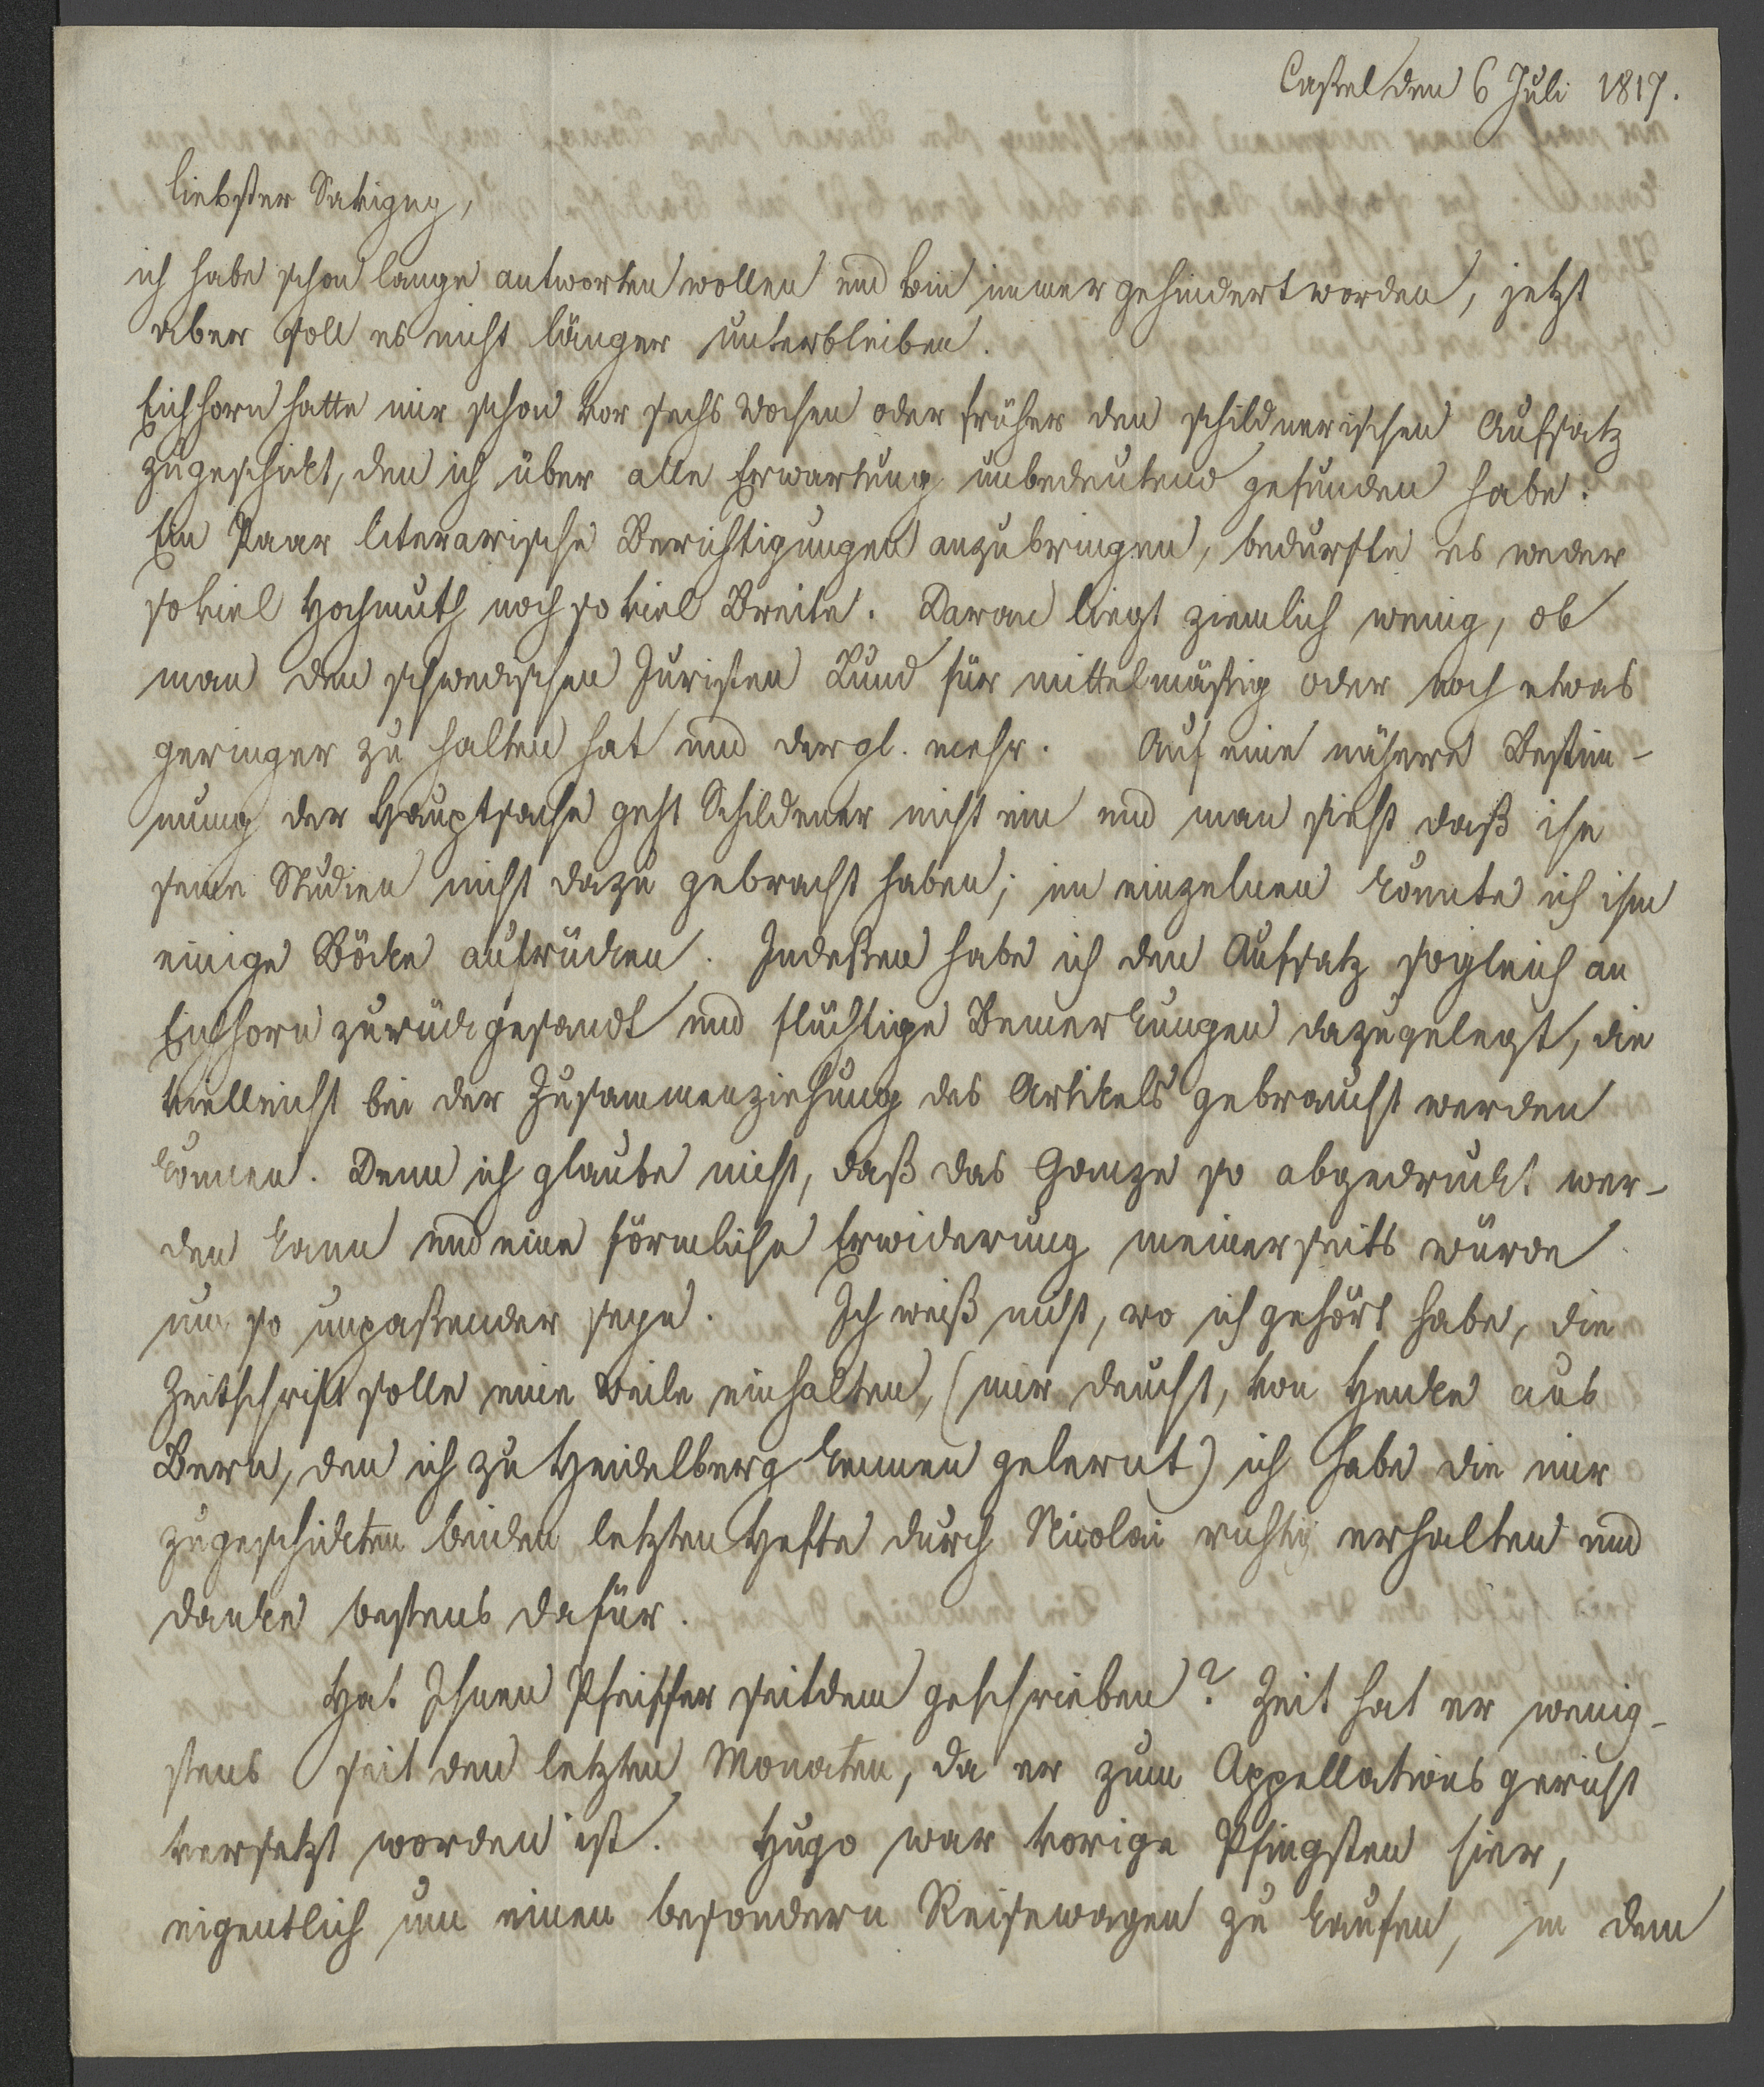 Cassel den 6 Juli 1817.
liebster Savigny,
ich habe schon lange antworten wollen und bin immer gehindert worden, jetzt
aber soll es nicht länger unterbleiben.
Eichhorn hatte mir schon vor sechs Wochen oder früher den schildnerischen Aufsatz
zugeschickt, den ich über alle Erwartung unbedeutend gefunden habe.
Ein Paar literarische Berichtigungen anzubringen, bedurfte es weder
so viel Hochmuth noch so viel Breite. Daran liegt ziemlich wenig, ob
man den schwedischen Juristen Lund für mittelmäßig oder noch etwas
geringer zu halten hat und dergl. mehr. Auf eine nähere Bestim-
mung der Hauptsache geht Schildener nicht ein und man sieht daß ihn
seine Studien nicht dazu gebracht haben; im einzelnen könnte ich ihm
einige Böcke aufrücken. Indeßen habe ich den Aufsatz sogleich an
Eichhorn zurückgesandt und flüchtige Bemerkungen dazugelegt, die
vielleicht bei der Zusammenziehung des Artikels gebraucht werden
können. Denn ich glaube nicht, daß das Ganze so abgedruckt wer-
den kann und eine förmliche Erwiderung meinerseits würde
um so unpaßender seyn. Ich weiß nicht, wo ich gehört habe, die
Zeitschrift solle eine Weile einhalten, (mir deucht, von Henke aus
Bern, den ich zu Heidelberg kennen gelernt) ich habe die mir
zugeschickten beiden letzten Hefte durch Nicolai richtig erhalten und
danke bestens dafür.
Hat Ihnen Pfeiffer seitdem geschrieben? Zeit hat er wenig-
stens seit den letzten Monaten, da er zum Appellationsgericht
versetzt worden ist. Hugo war vorige Pfingsten hier,
eigentlich um einen besondern Reisewagen zu kaufen, in dem